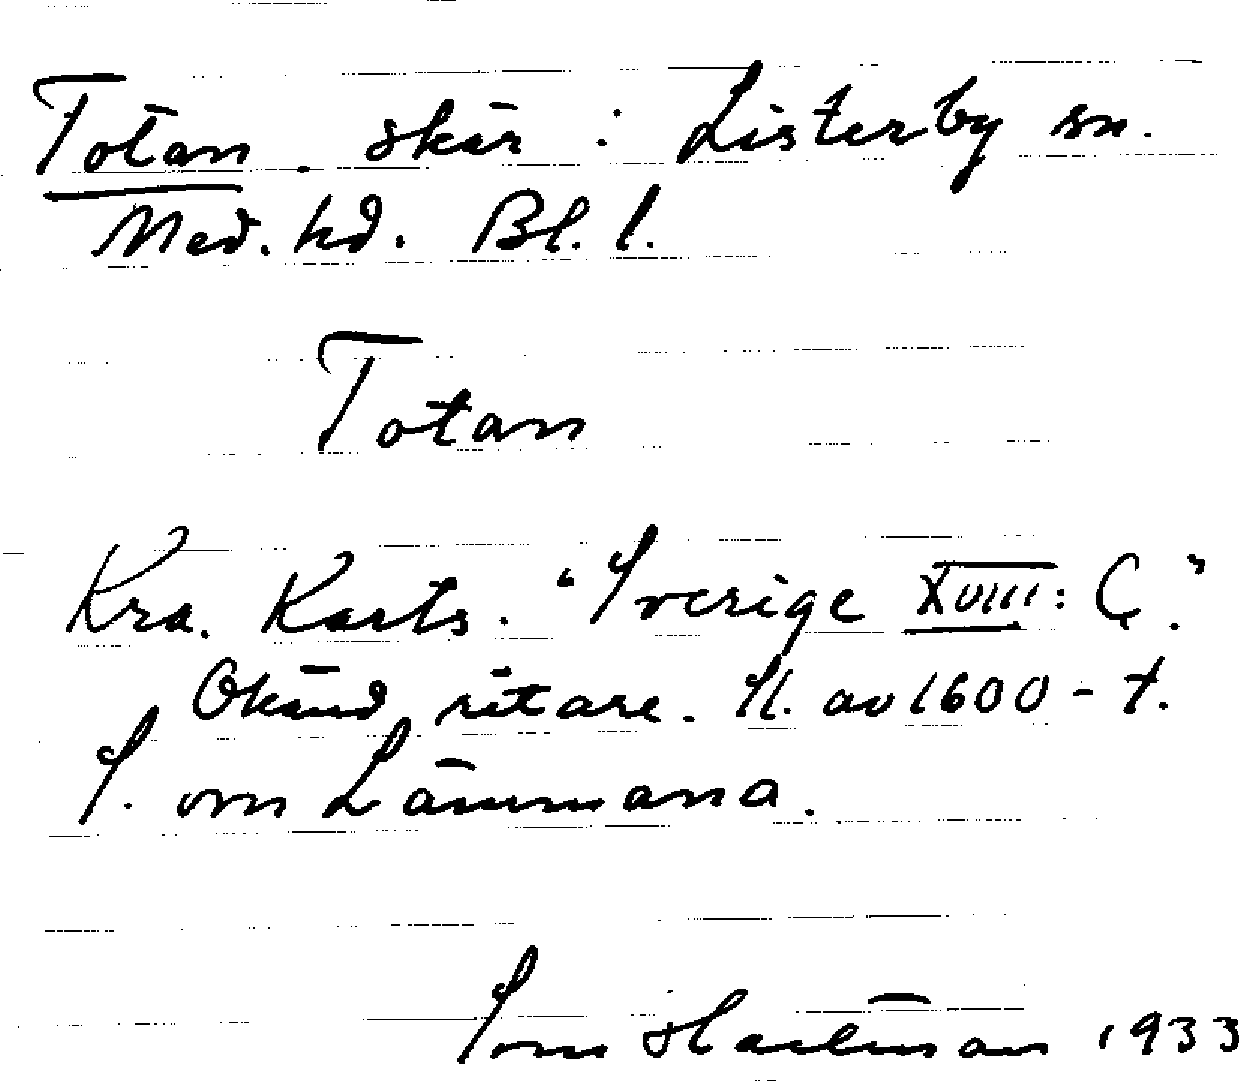 Totan. skär i Listerby sn.
Med. hd. Bl. l.
Totan
Kra. Karts. "Sverige XVIII: C."
Okänd ritare. Sl. av 1600-t.
S. om
1933